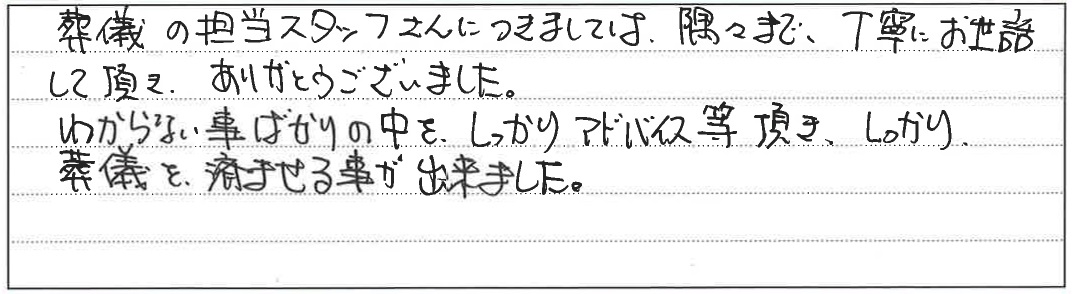 葬儀の担当スタッフさんにつきましては、隅々まで、丁寧にお世話
して頂き、ありがとうございました。
わからない事ばかりの中を、しっかりアドバイス等頂き、しっかり、
葬儀を、済ませる事が出来ました。